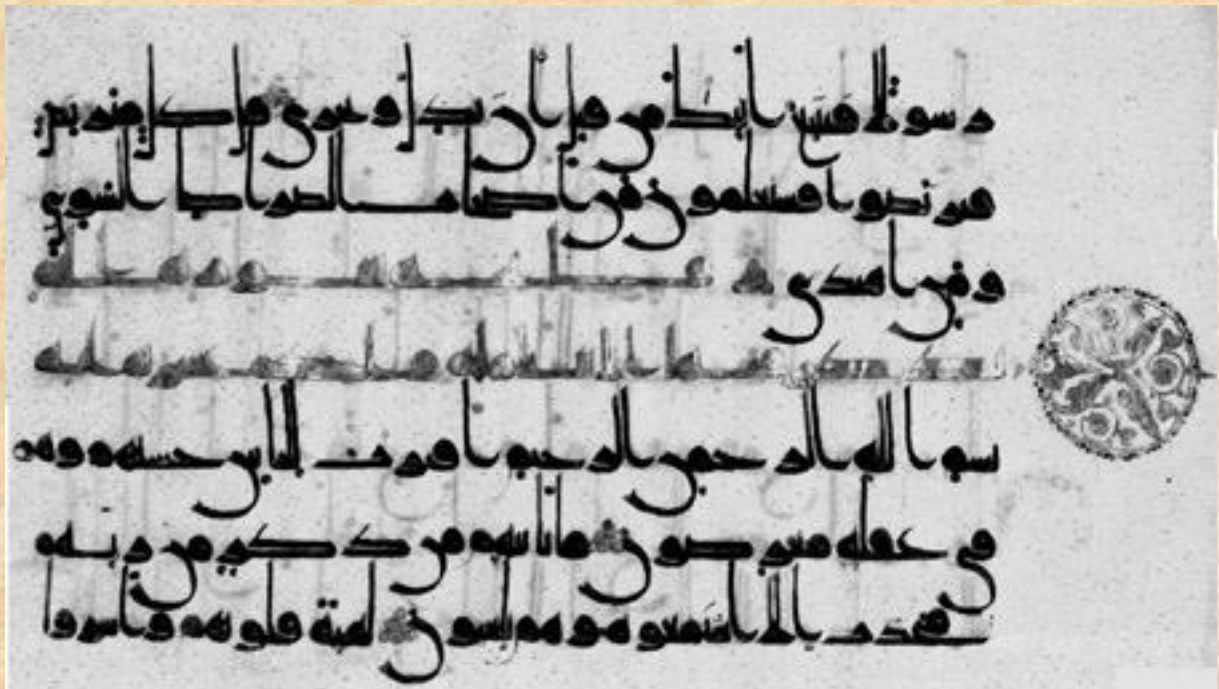 رسولا فنتبع ايتك من قبل ان نذل و نخزى قل كل متربص
فتربصوا فستعلمون من اصحب الصرط السوي
و من اهتدى
بسم الله الرحمن الرحيم اقترب للناس حسبهم وهم
في غفلة معرضون ما ياتيهم من ذكر من ربهم
محدث الا استمعوه وهم يلعبون لهية قلوبهم و اسروا